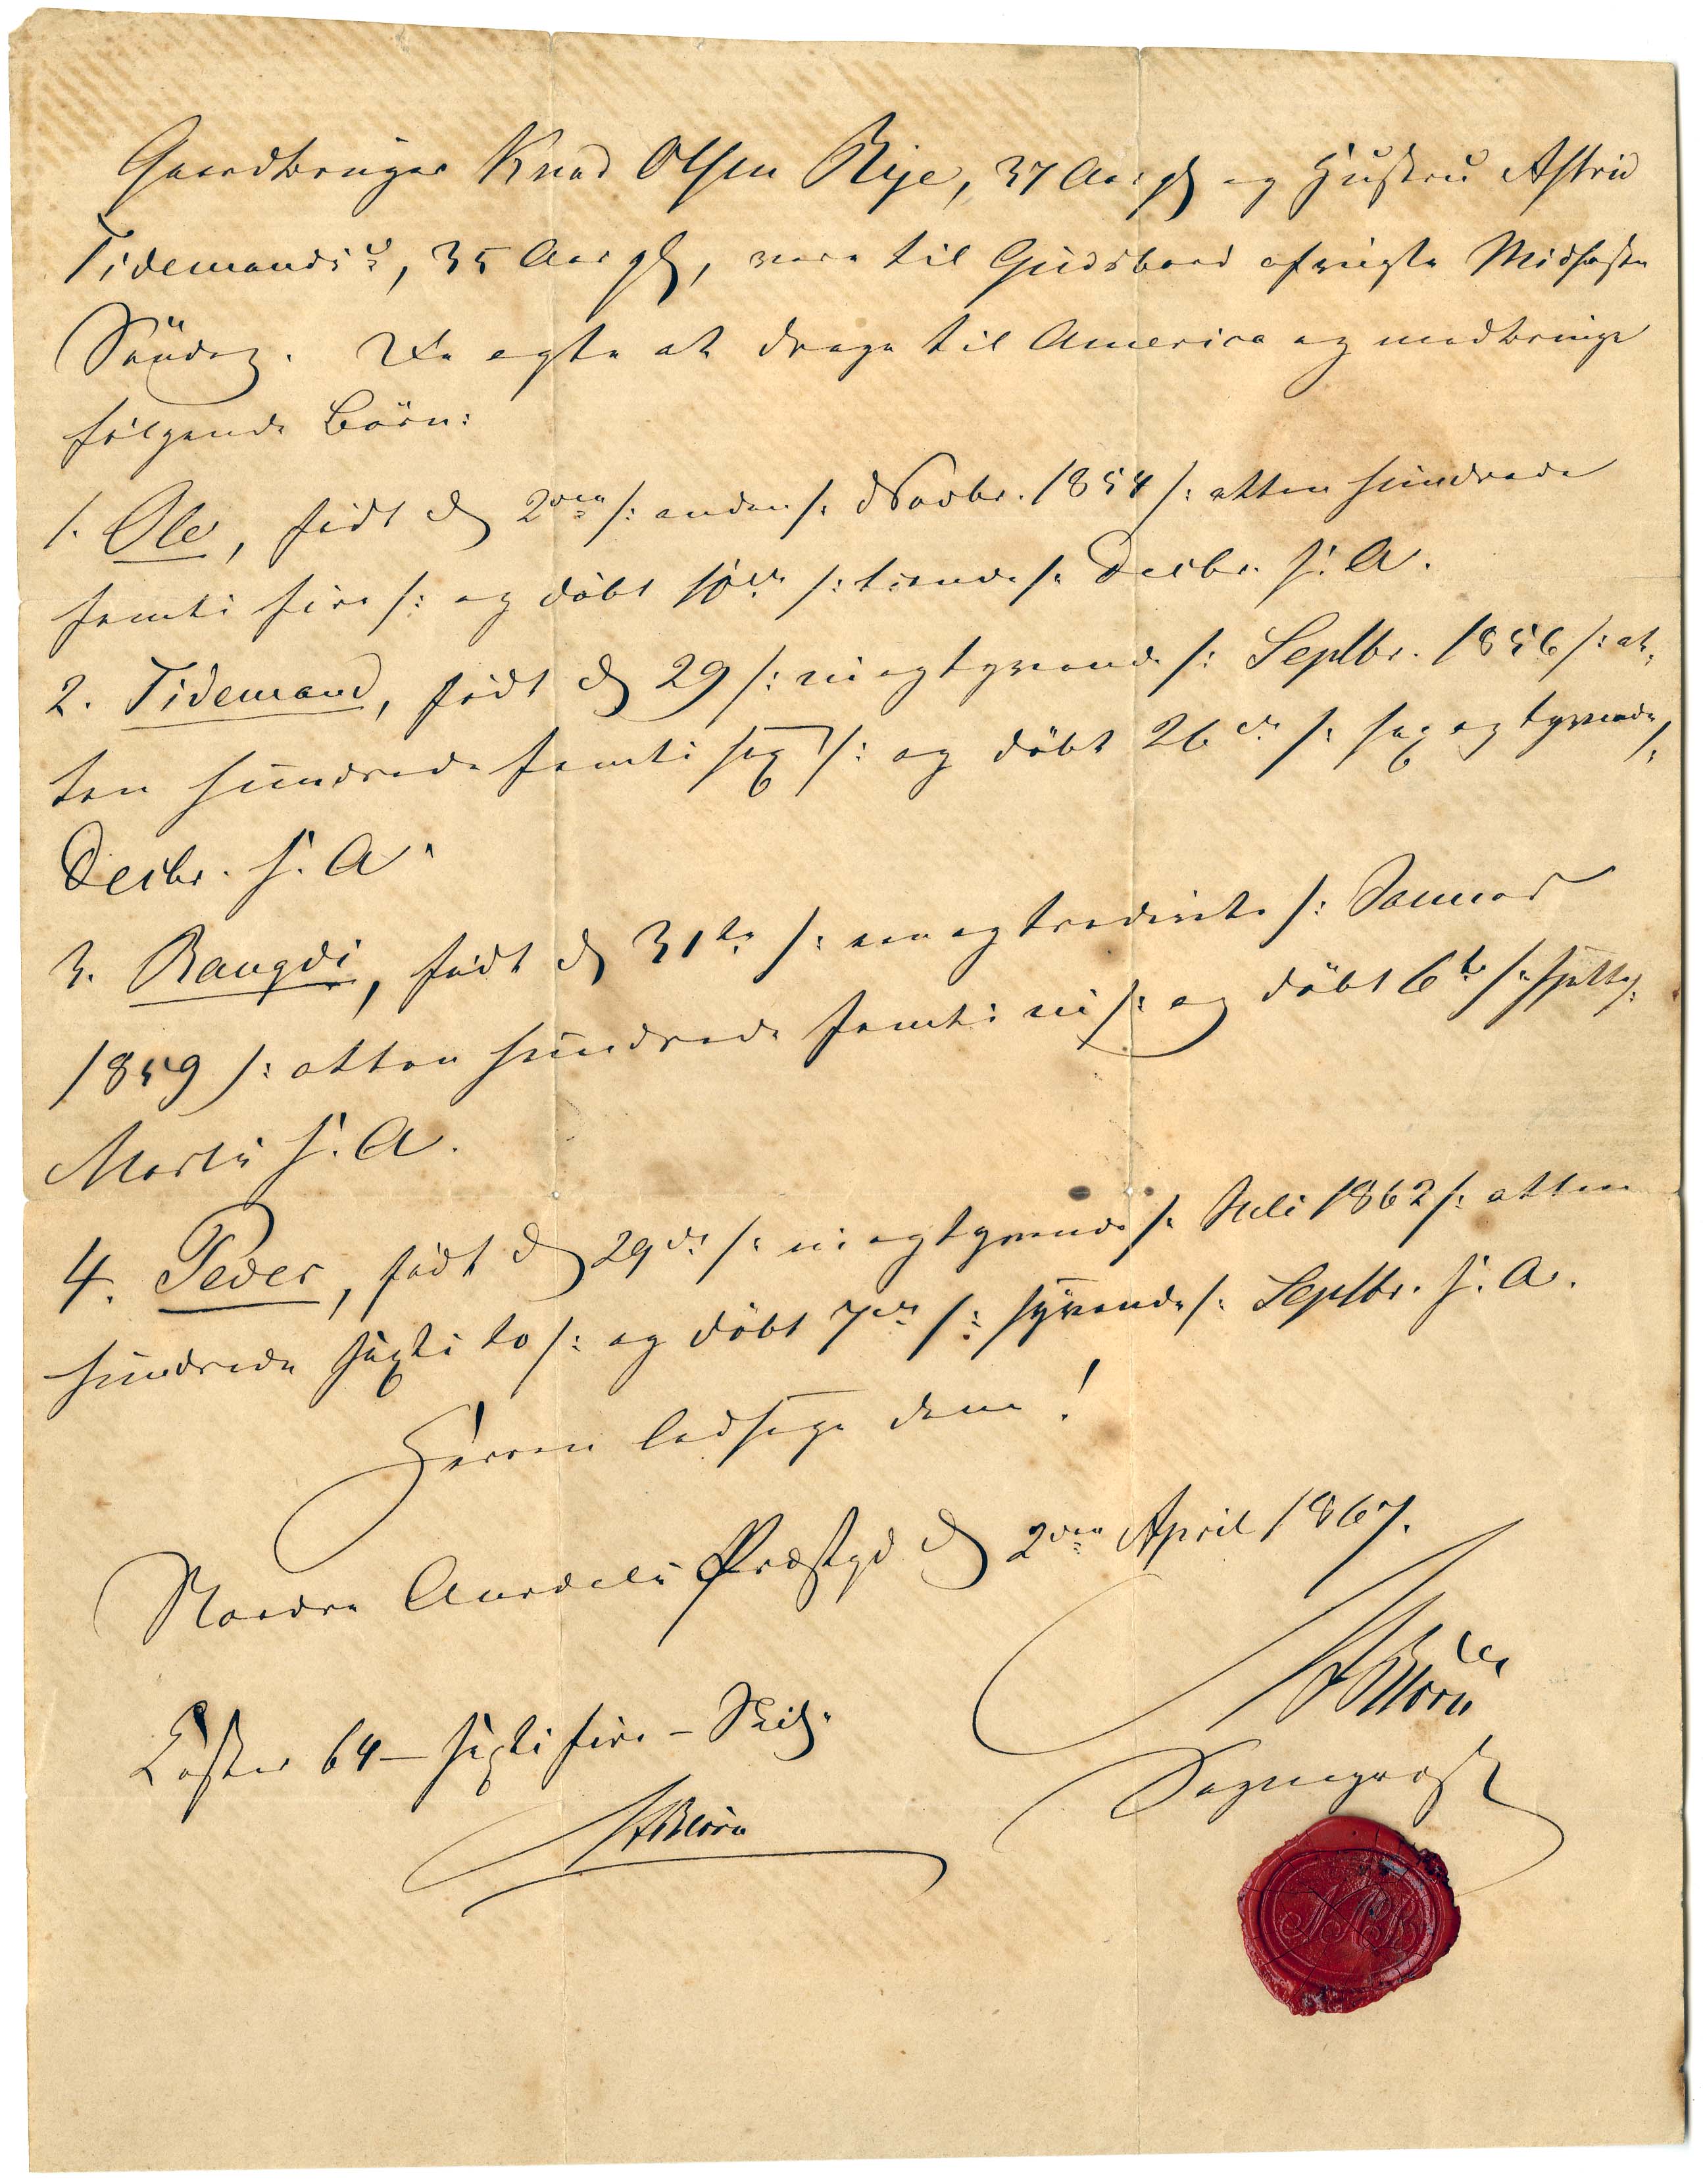 Gaardbruger Knud Olsen Rije, 37 Aar gl og Hustru Astrid
Tidemandsd, 35 Aar gl, vare til Gudsbord afvigte Midfaste
Söndag. De agte at drage til America og medbringe
fölgende Börn:
1. Ole, födt d 2den /: anden /: Novbr. 1854 /: atten hundrede
femti fire /: og döbt 10de /: tiende /: Decbr. s. A.
2. Tidemand, födt d 29 /: niogtyvende /: Septbr. 1856 /: at-
ten hundrede femti sex /: og döbt 26de /: sex og tyvende /:
Decbr. s. A.
3. Rangdi, födt d 31te /: en og tredivte /: Januar
1859 /: atten hundrede femti ni /: og döbt 6te /: sjette /:
Marts s. A.
4. Peder, födt d 29de /: niogtyvende /: Juli 1862 /: atten
hundrede sexti to /: og döbt 7de /: syvende /: Septbr. s. A.
Herren ledsage dem!
Nordre Aurdals Præstgd d 2den April 1867.
Sognepræst
Koster 64 – sexti fire – Skill.